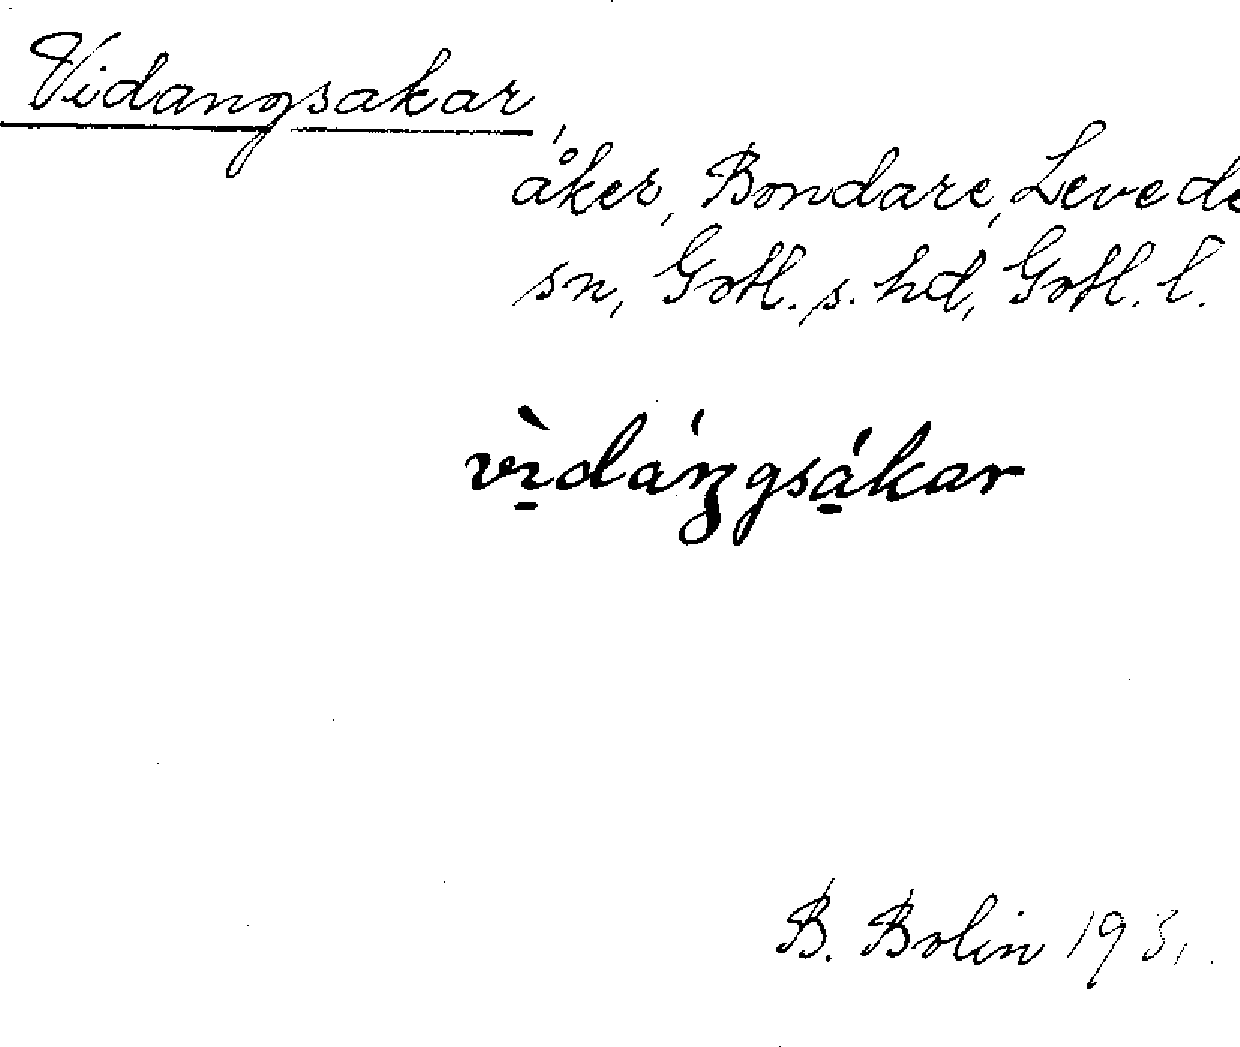 Vidangsakar,
åker, Bondare, Levede
sn, Gotl. s. hd, Gotl. l.
vìdáŋgsákar
B. Bolin 1931.